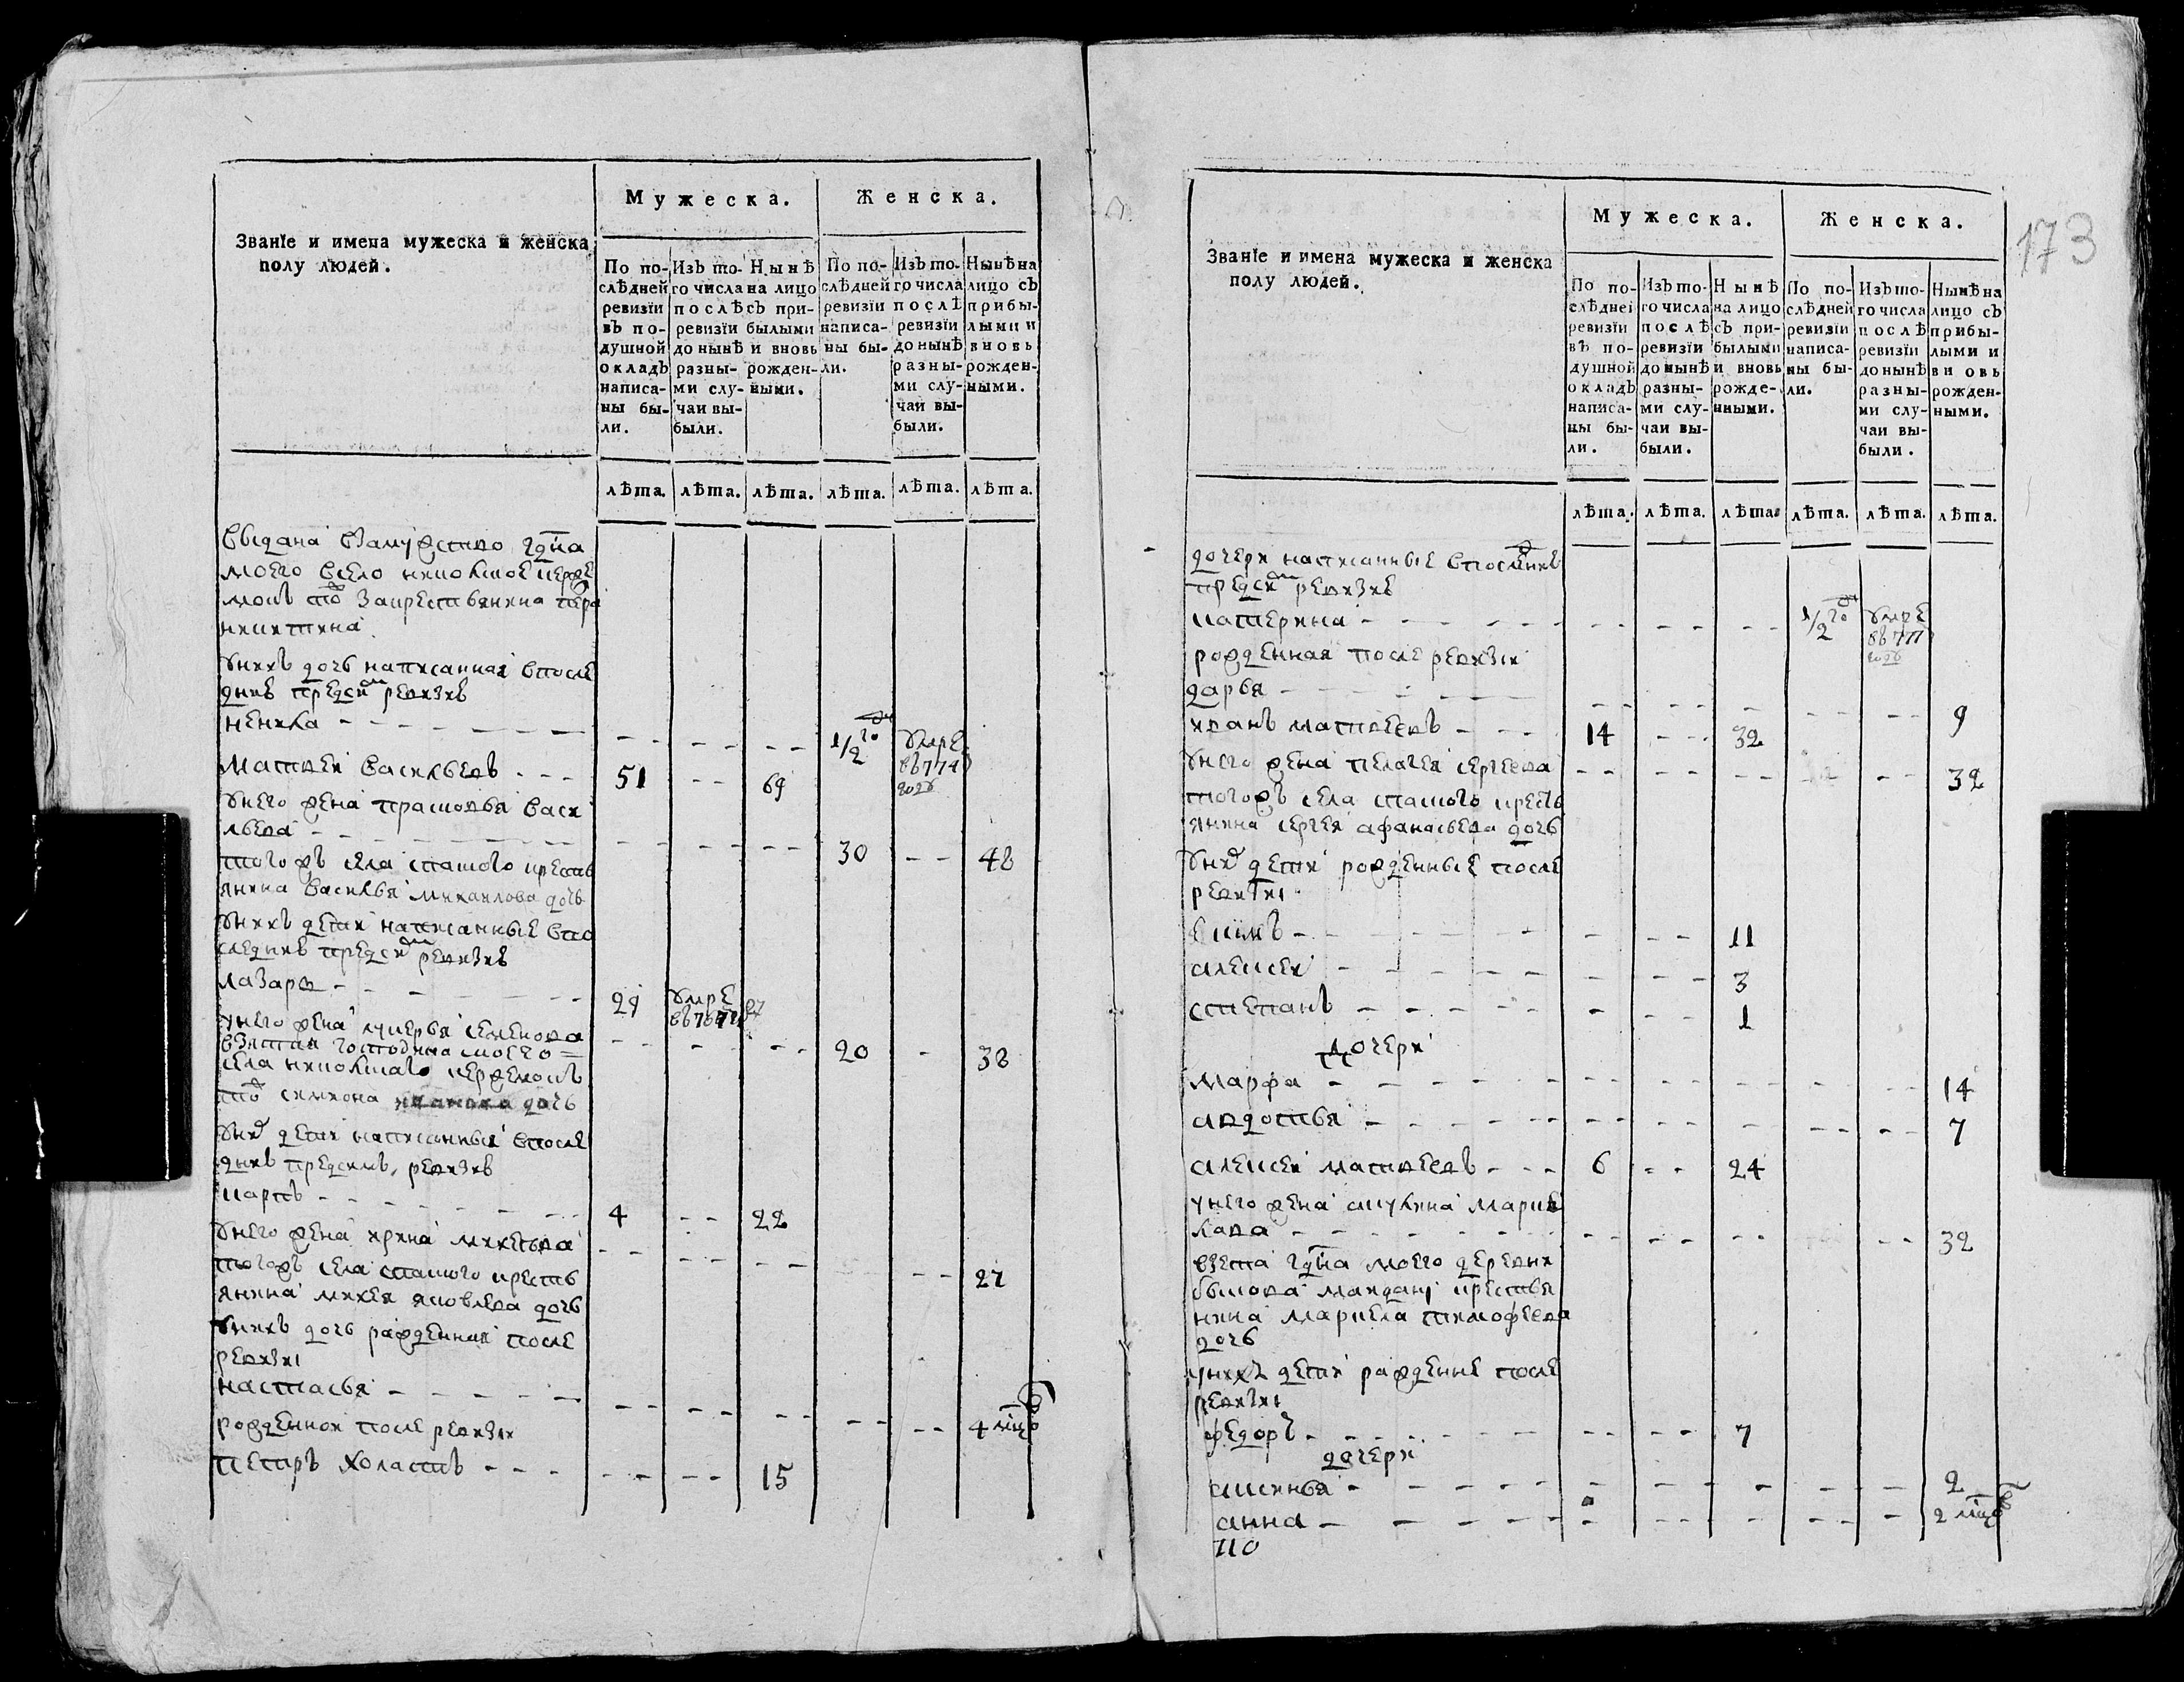 Званїе и имена мужеска и женска
полу людей.
Мужеска.
Женска.
По по-
слѣдней
ревизїи
въ по-
душной
окладъ
написа-
ны бы-
ли.
Изъ то-
го числа
послѣ
ревизїи
до нынѣ
разны-
ми слу-
чаи вы-
были.
Нынѣ
на лицо
съ при-
былыми
и вновь
рожден-
ными.
По по-
слѣдней
ревизїи
написа-
ны бы-
ли.
Изъ то-
го числа
послѣ
ревизїи
до нынѣ
разны-
ми слу-
чаи вы-
были.
Нынѣ на
лицо съ
прибы-
лыми и
вновь
рожден-
ными.
лѣта. лѣта. лѣта. лѣта. лѣта. лѣта.
выдана взамужство гдна
моего вѣело
за крестьянина петра
никитина
уних дочь написанная впосле
днѣ предсим ревизіѣ
ненила 1/2 го умре
въ 774
годѣ
матвей васильевъ 51 69
унего жена прасковья васи
льева 30 48
тогожъ села стамого кресть
янина василья михаилова дочь
унихъ дети написанные впо
следнѣ предсим ревизіѣ
лазарь 29 умре
унего жена лукерья семенова 20 38
взятая господина моего
села
симиона дочь
уних дети написанныя впосле
днѣ предсимъ ревизіѣ
карпъ 4 22
унего жена ирина микеева 27
тогожъ села стамого кресть
янина микея яковлева дочь
унихъ дочь рожденная после
ревизіи
настасья 4 мцъ
рожденной после ревизіи
петръ холастъ 15
173
Званїе и имена мужеска и женска
полу людей.
Мужеска.
Женска.
По по-
слѣдней
ревизїи
въ по-
душной
окладъ
написа-
ны бы-
ли.
Изъ то-
го числа
послѣ
ревизїи
до нынѣ
разны-
ми слу-
чаи вы-
были.
Нынѣ
на лицо
съ при-
былыми
и вновь
рожде-
нными.
По по-
слѣдней
ревизїи
написа-
ны бы-
ли.
Изъ то-
го числа
послѣ
ревизїи
до нынѣ
разны-
ми слу-
чаи вы-
были.
Нынѣ на
лицо съ
прибы-
лыми и
вновь
рожден-
ными.
лѣта. лѣта. лѣта. лѣта. лѣта. лѣта.
дочери написанные впоследнѣ
предсим ревизіѣ
катерина 1/2 го умре
въ 777
годѣ
рожденная после ревизіи
дарья 9
иванъ матвеевъ 14 32
унего жена пелагея сергеева 32
тогожъ села стамого кресть
янина сергея афанасьева дочь
уних дети рожденные после
ревизіи
екимъ 11
алексей 3
степанъ 1
дочери
марфа 14
авдотья 7
алексей матвеевъ 6 24
унего жена акулина марке
лава 32
взета гдна моего деревни
майдану крестья
нина маркела тимофеева
дочь
унихъ дети рожденне после
ревизіи
федоръ 7
дочери
аксинья 2
анна 2 мцъ
по